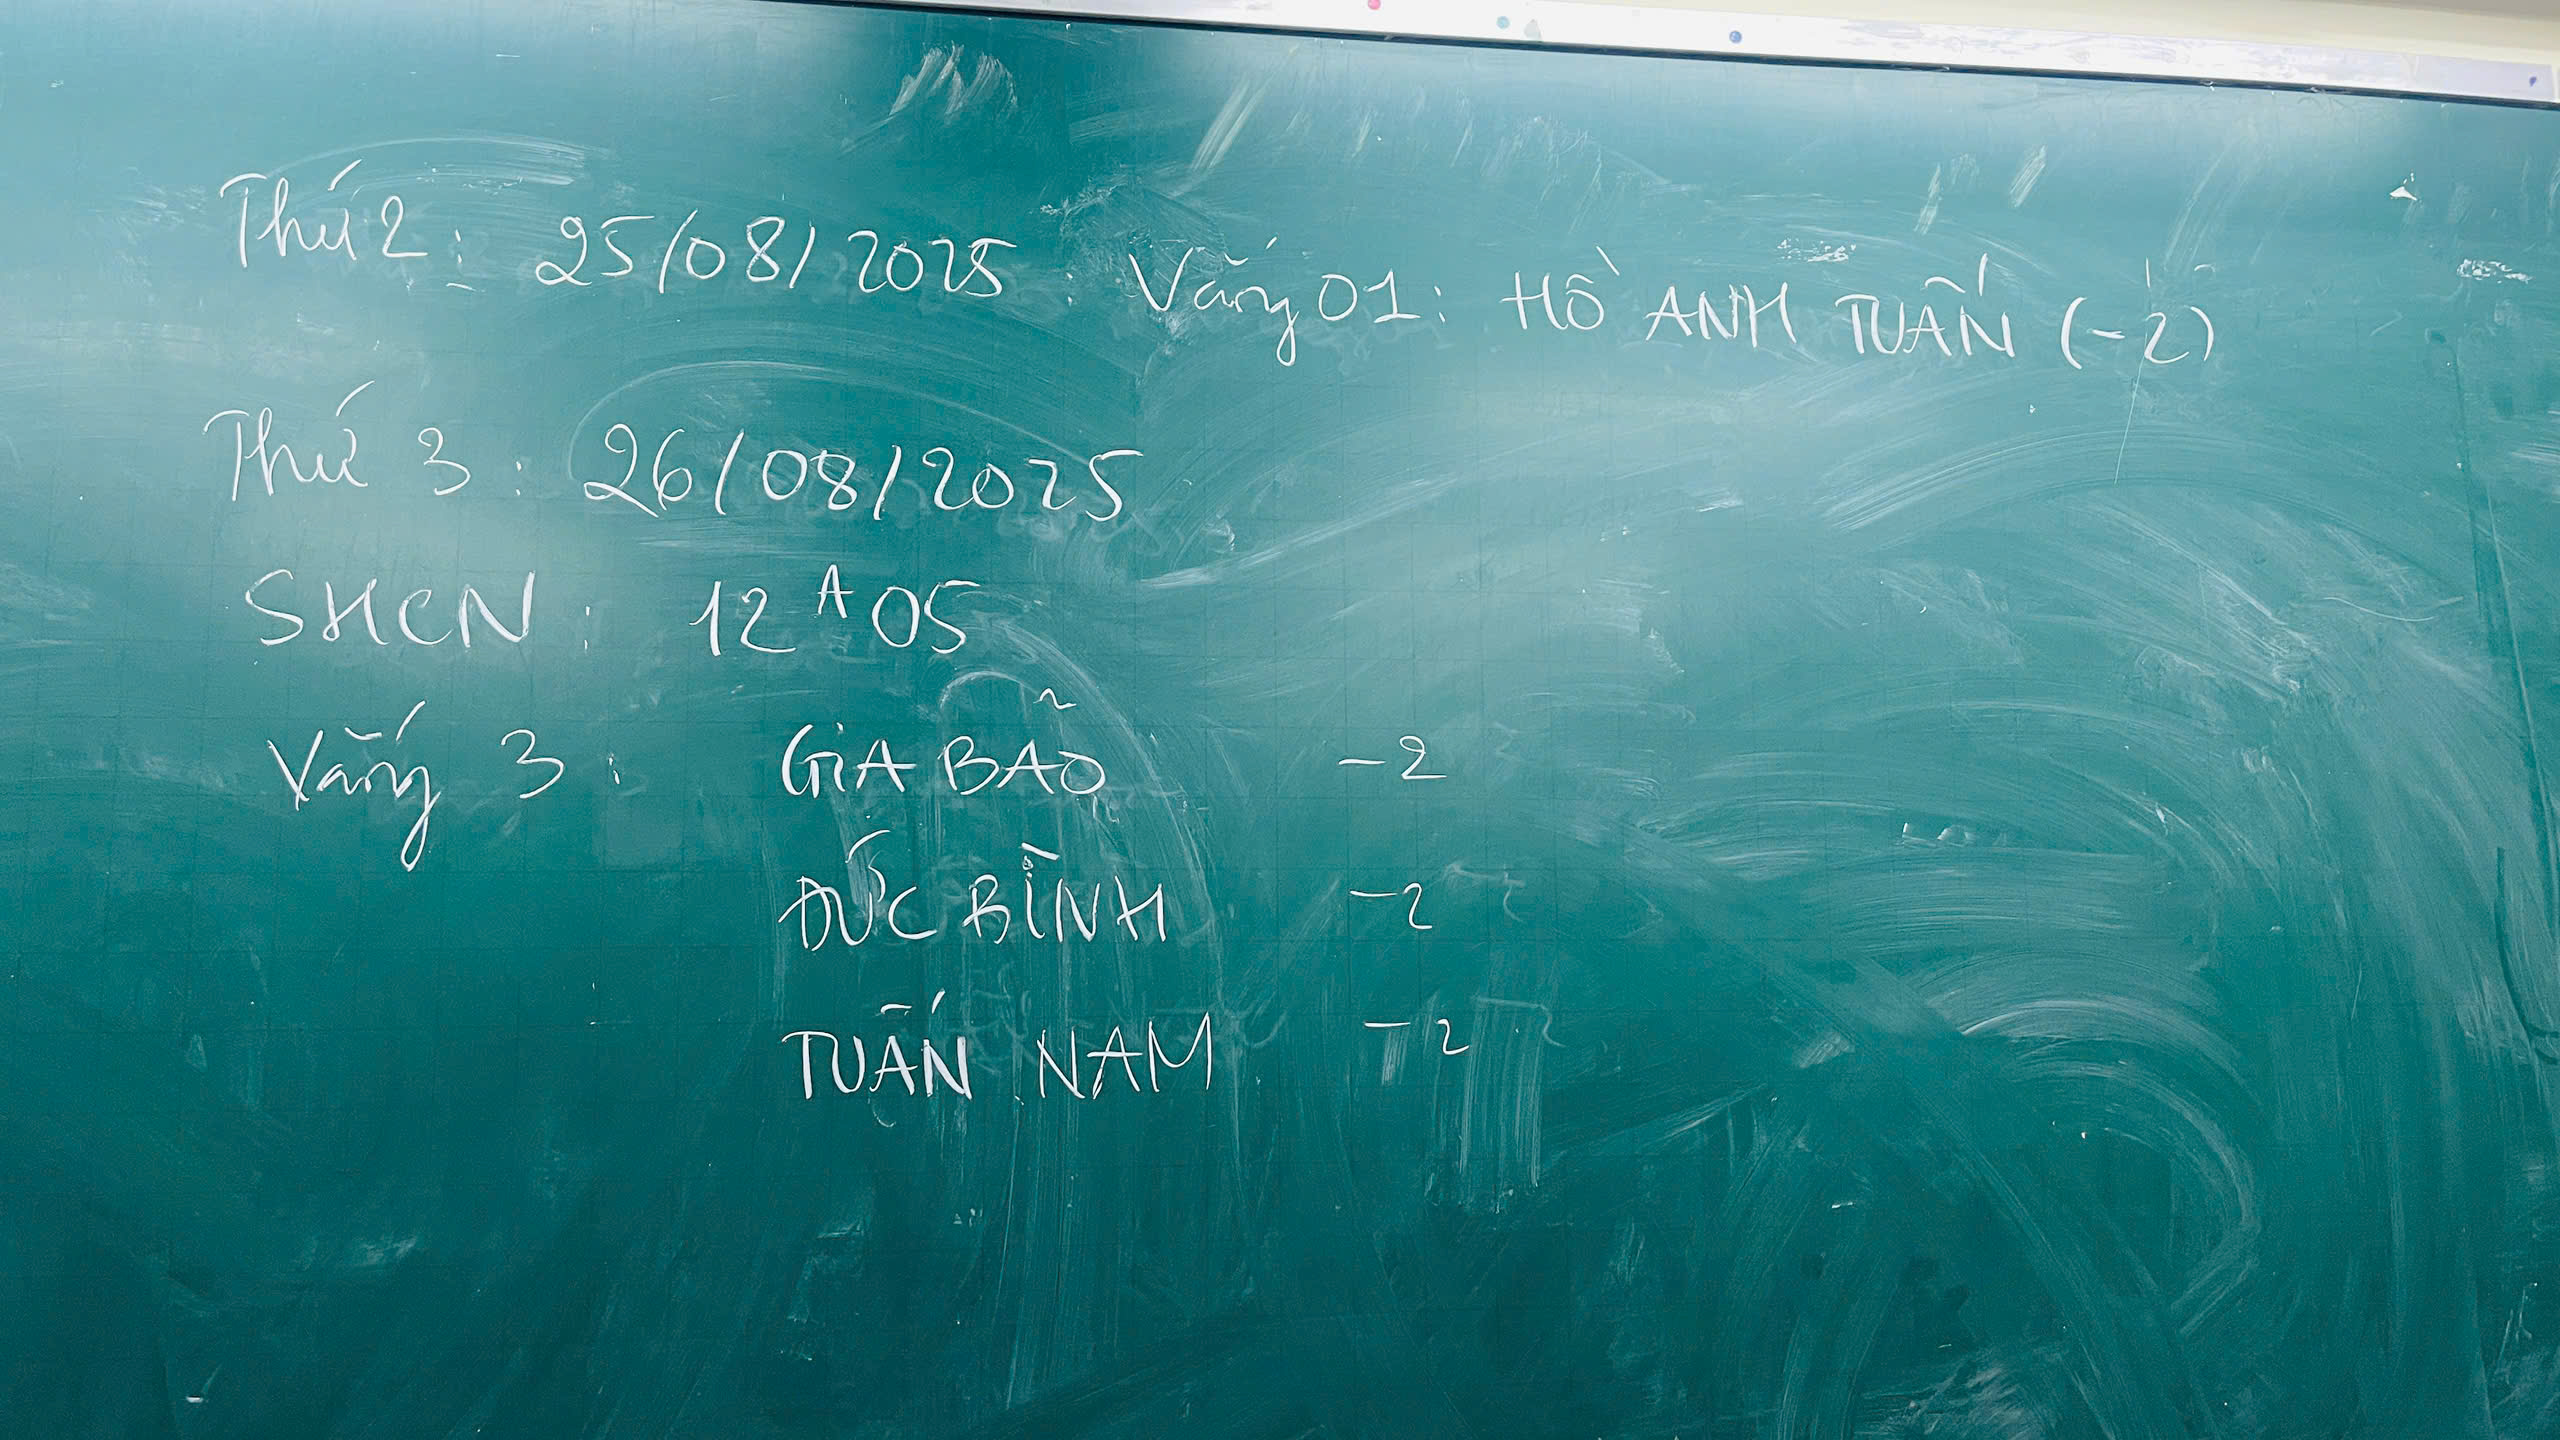 Thứ 2: 25/08/2025. Vắng 01: HỒ ANH TUẤN (-2)
Thứ 3: 26/08/2025
SHCN: 12A05
Vắng 3: GIA BÃO -2
ĐỨC BÌNH -2
TUẤN NAM -2